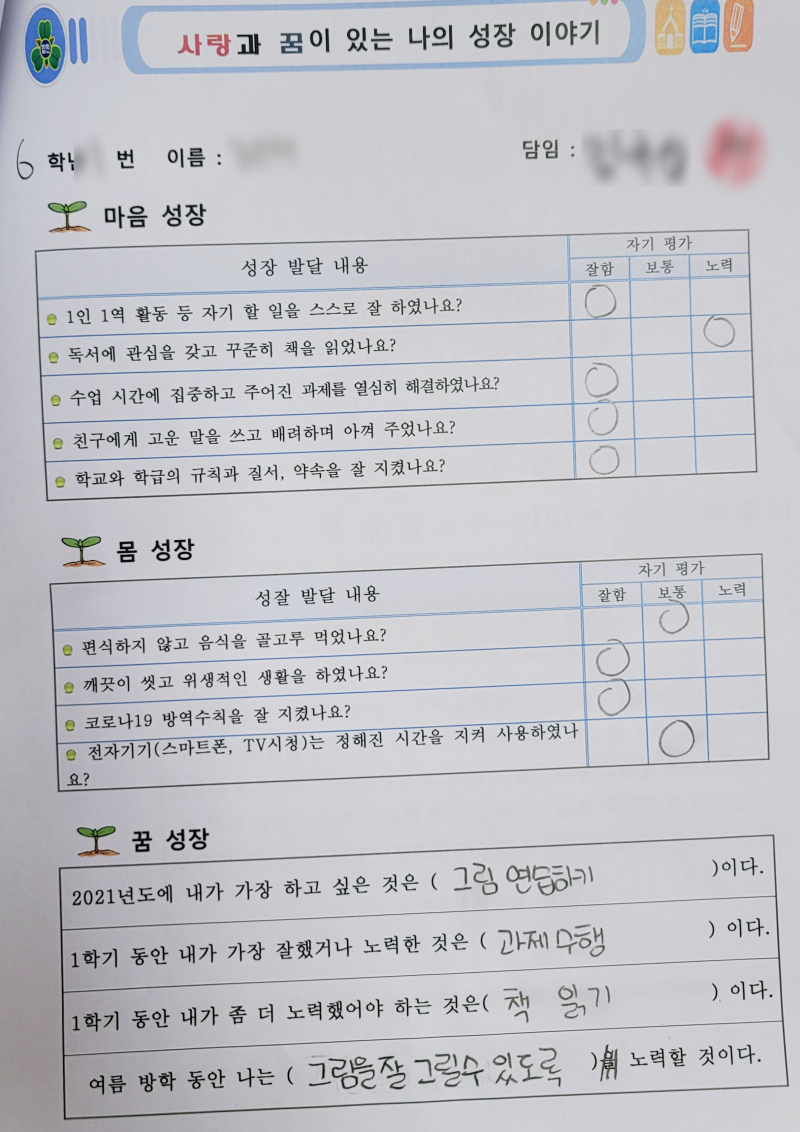 사랑과 꿈이 있는 나의 성장 이야기
6 학년 번 이름 : 담임 :
마음 성장
성장 발달 내용 자기 평가
잘함 보통 노력
1인 1역 활동 등 자기 할 일을 스스로 잘 하였나요?
독서에 관심을 갖고 꾸준히 책을 읽었나요?
수업 시간에 집중하고 주어진 과제를 열심히 해결하였나요?
친구에게 고운 말을 쓰고 배려하며 아껴 주었나요?
학교와 학급의 규칙과 질서, 약속을 잘 지켰나요?
몸 성장
성잘 발달 내용 자기 평가
잘함 보통 노력
편식하지 않고 음식을 골고루 먹었나요?
깨끗이 씻고 위생적인 생활을 하였나요?
코로나19 방역수칙을 잘 지켰나요?
전자기기(스마트폰, TV시청)는 정해진 시간을 지켜 사용하였나
요?
꿈 성장
2021년도에 내가 가장 하고 싶은 것은 ( 그림 연습하기 )이다.
1학기 동안 내가 가장 잘했거나 노력한 것은 ( 과제 수행 ) 이다.
1학기 동안 내가 좀 더 노력했어야 하는 것은( 책 읽기 ) 이다.
여름 방학 동안 나는 ( 그림을 잘 그릴수 있도록 ) 노력할 것이다.